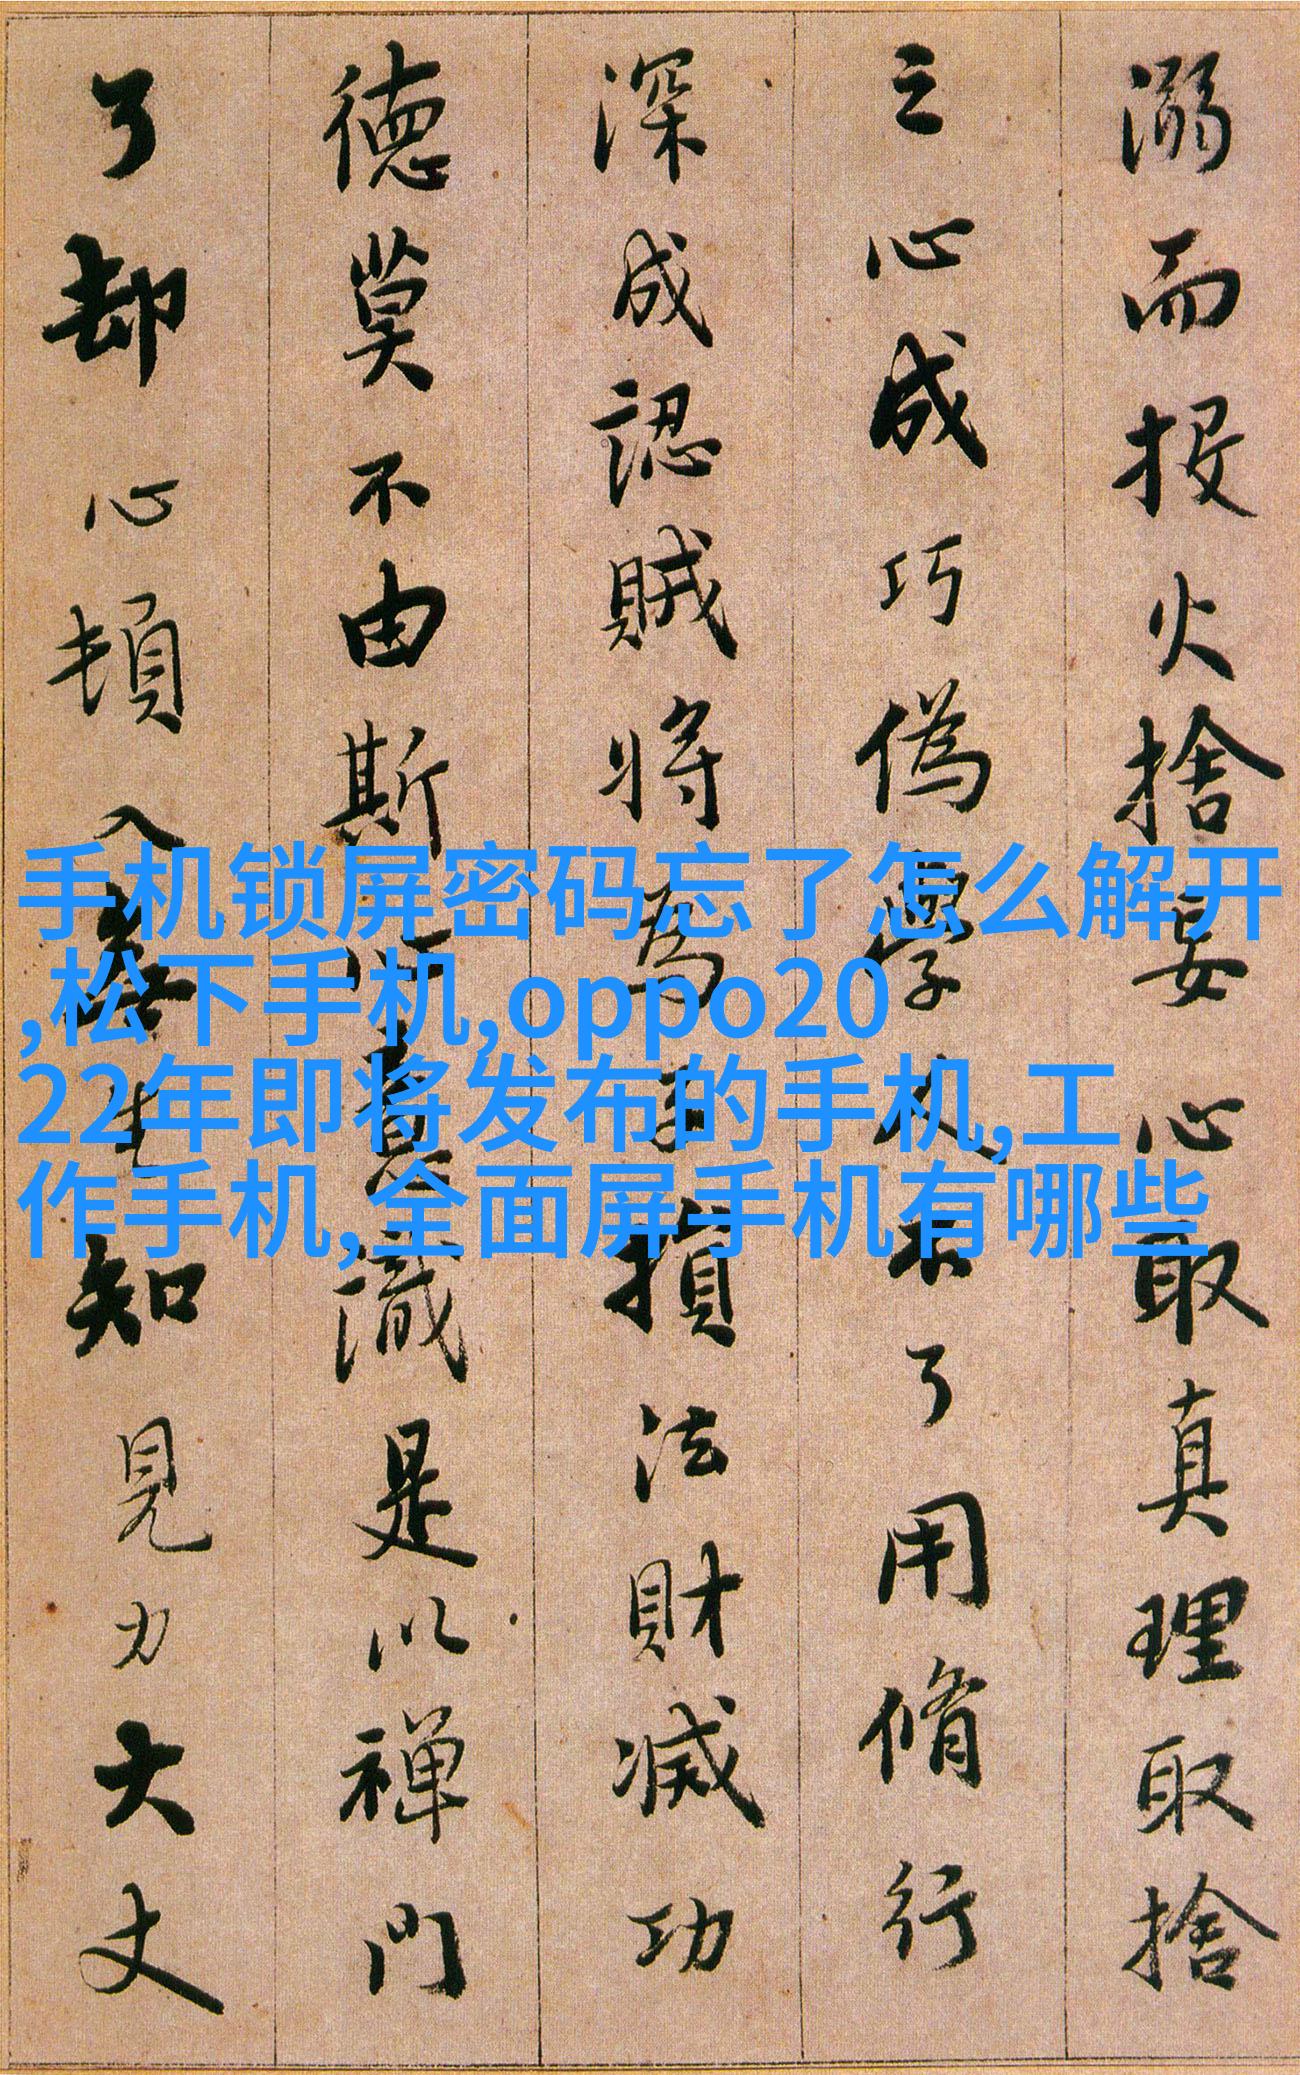 溺而投火捨妄心取真理取捨
之心成巧偽學人不了用脩行
深成認賊將為子損法財滅功
德莫不由斯心意識是以禪門
了却心頓入無生知見力大丈
手机锁屏密码忘了怎么解开
,松下手机,oppo20
22年即将发布的手机,工
作手机,全面屏手机有哪些